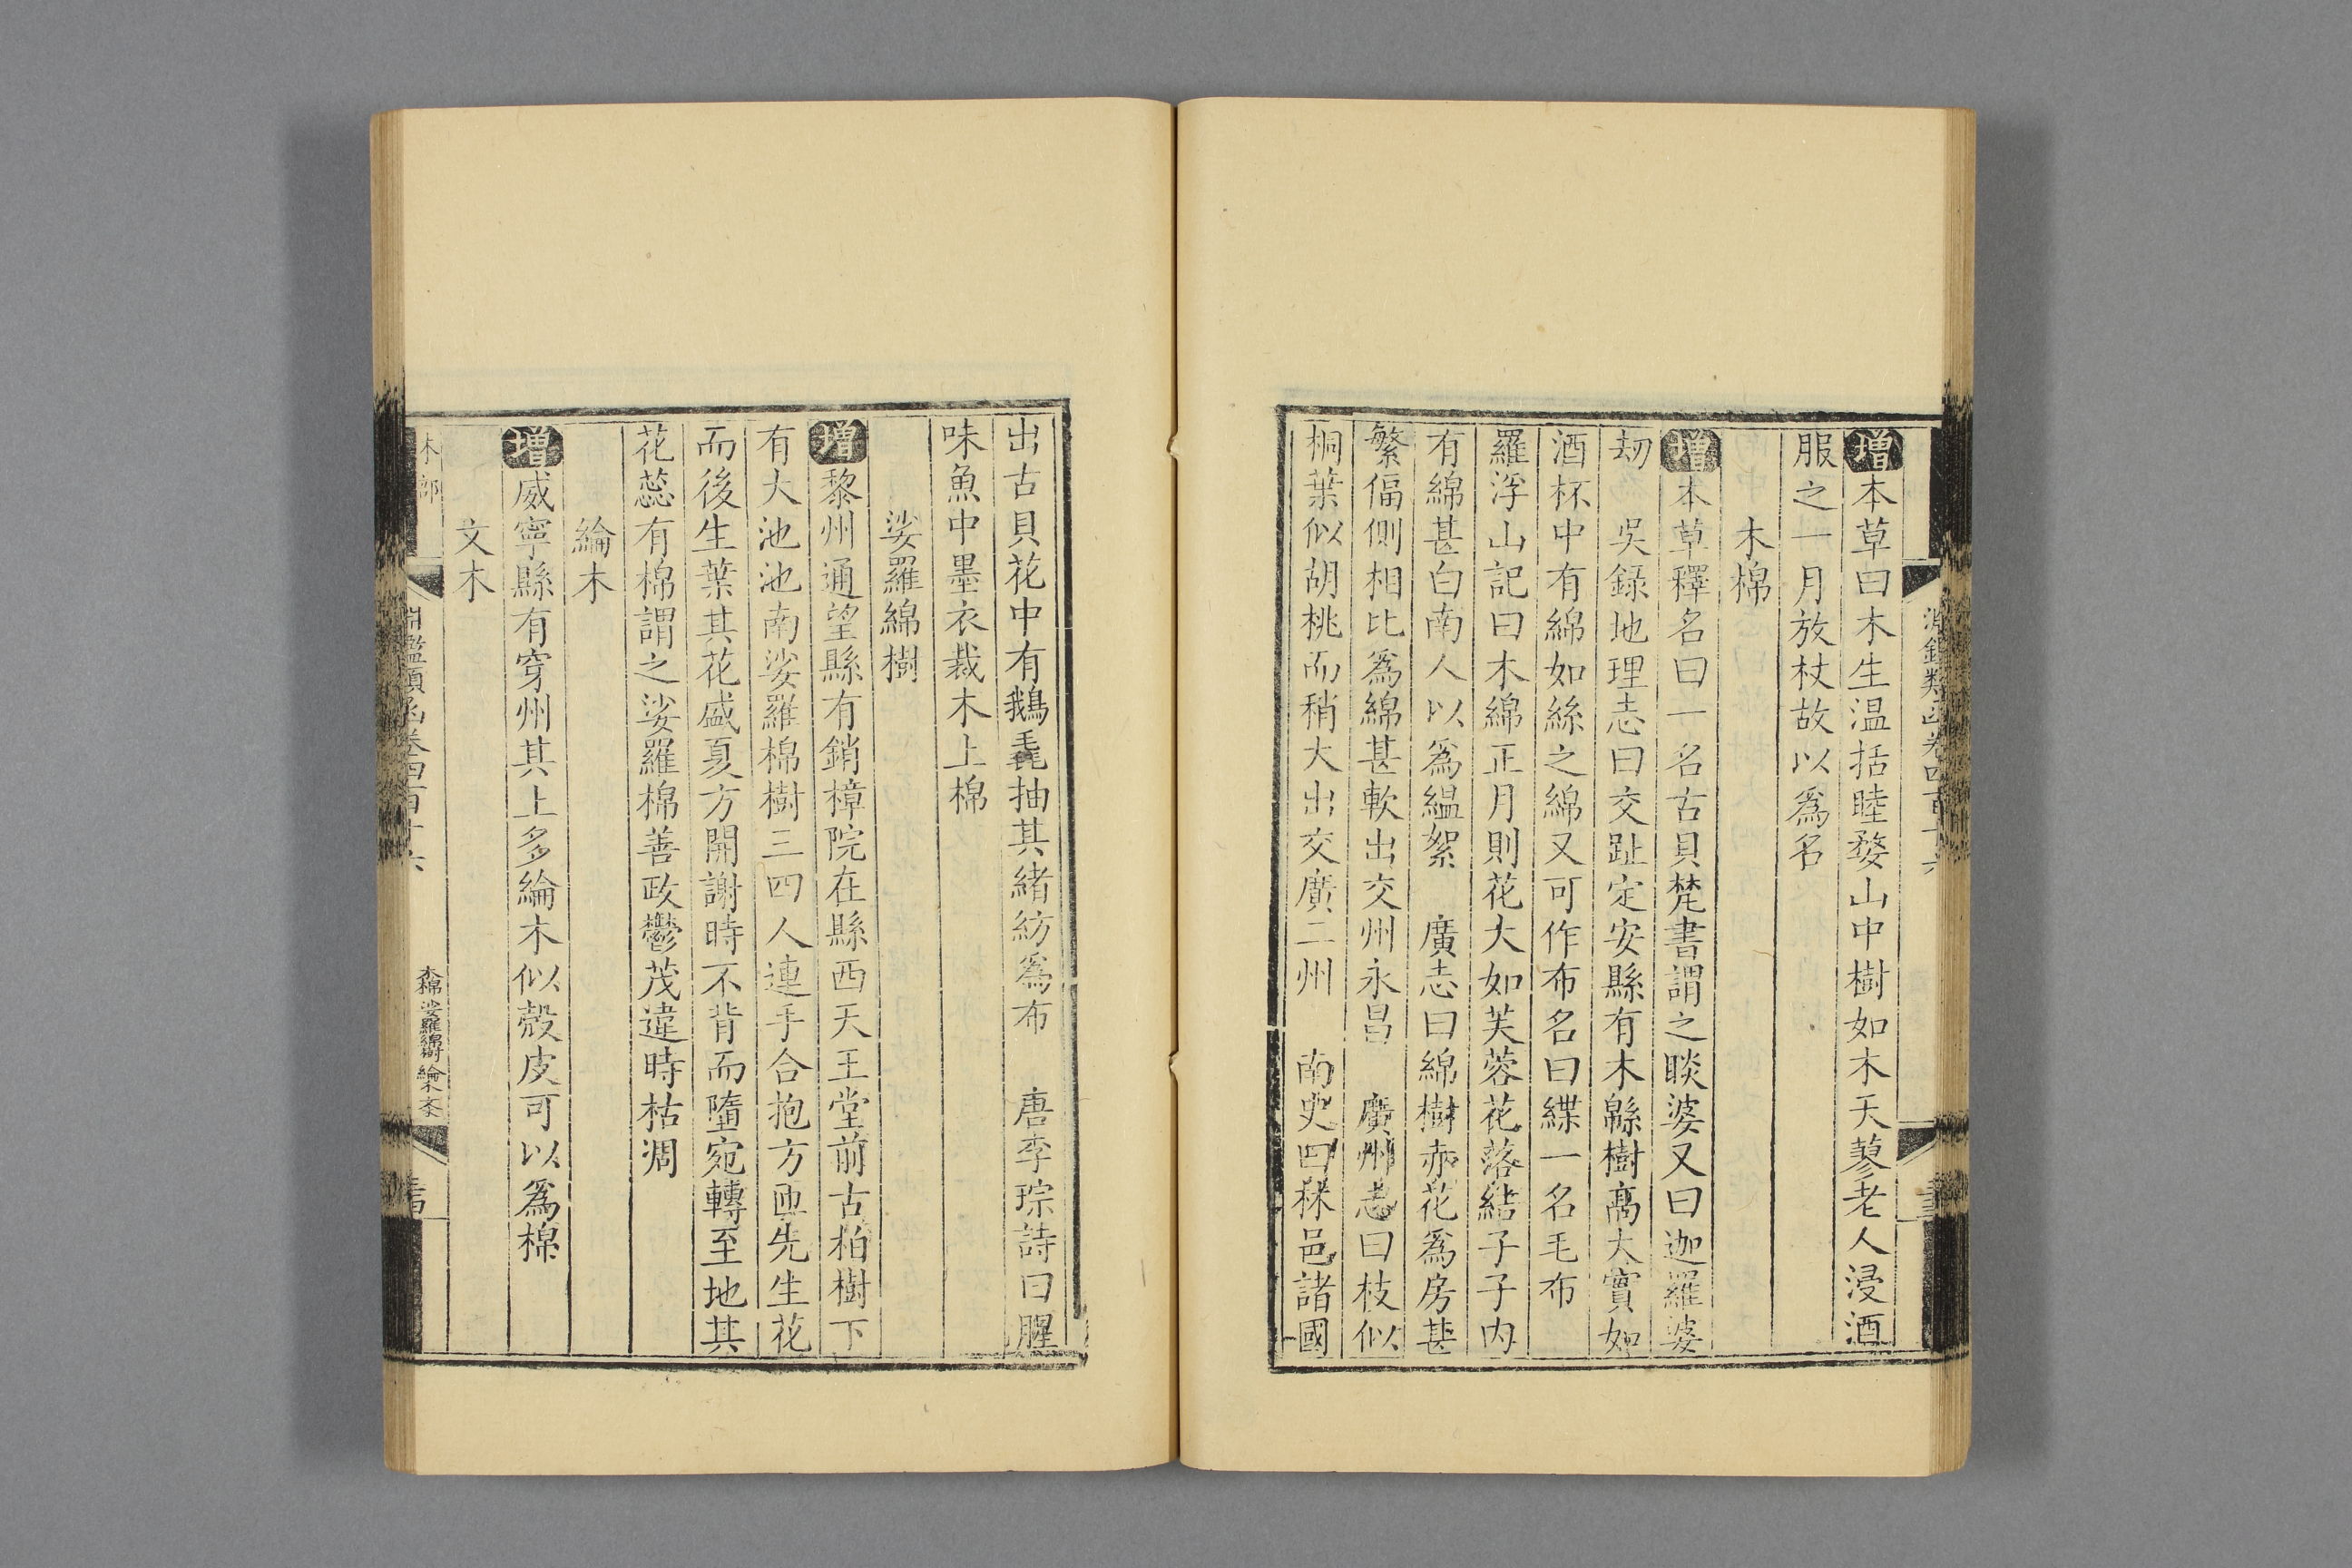 增本草曰木生温括睦婺山中樹如木天蓼老人浸酒
服之一月放杖故以爲名
木棉
增本草釋名曰一名古貝梵書謂之睒婆又曰迦羅婆
劫 吳錄地理志曰交趾定安縣有木緜樹髙大實如
酒杯中有綿如絲之綿又可作布名曰緤一名毛布
羅浮山記曰木綿正月則花大如芙蓉花落結子子内
有綿甚白南人以爲緼絮 廣志曰綿樹赤花爲房甚
繁偪側相比爲綿甚軟出交州永昌 廣州志曰枝似
桐葉似胡桃而稍大出交廣二州 南史曰秣邑諸國
出古貝花中有鵝毳抽其緒紡爲布 唐李琮詩曰腥
味魚中墨衣裁木上棉
娑羅綿樹
增黎州通望縣有銷樟院在縣西天王堂前古柏樹下
有大池池南娑羅棉樹三四人連手合抱方匝先生花
而後生葉其花盛夏方開謝時不背而墮宛轉至地其
花蕊有棉謂之娑羅棉善政鬱茂違時枯凋
綸木
增威寧縣有穿州其上多綸木似殼皮可以爲棉
文木
木部
淵鑑類函卷四百十六
木棉 娑羅綿樹 綸木 文木